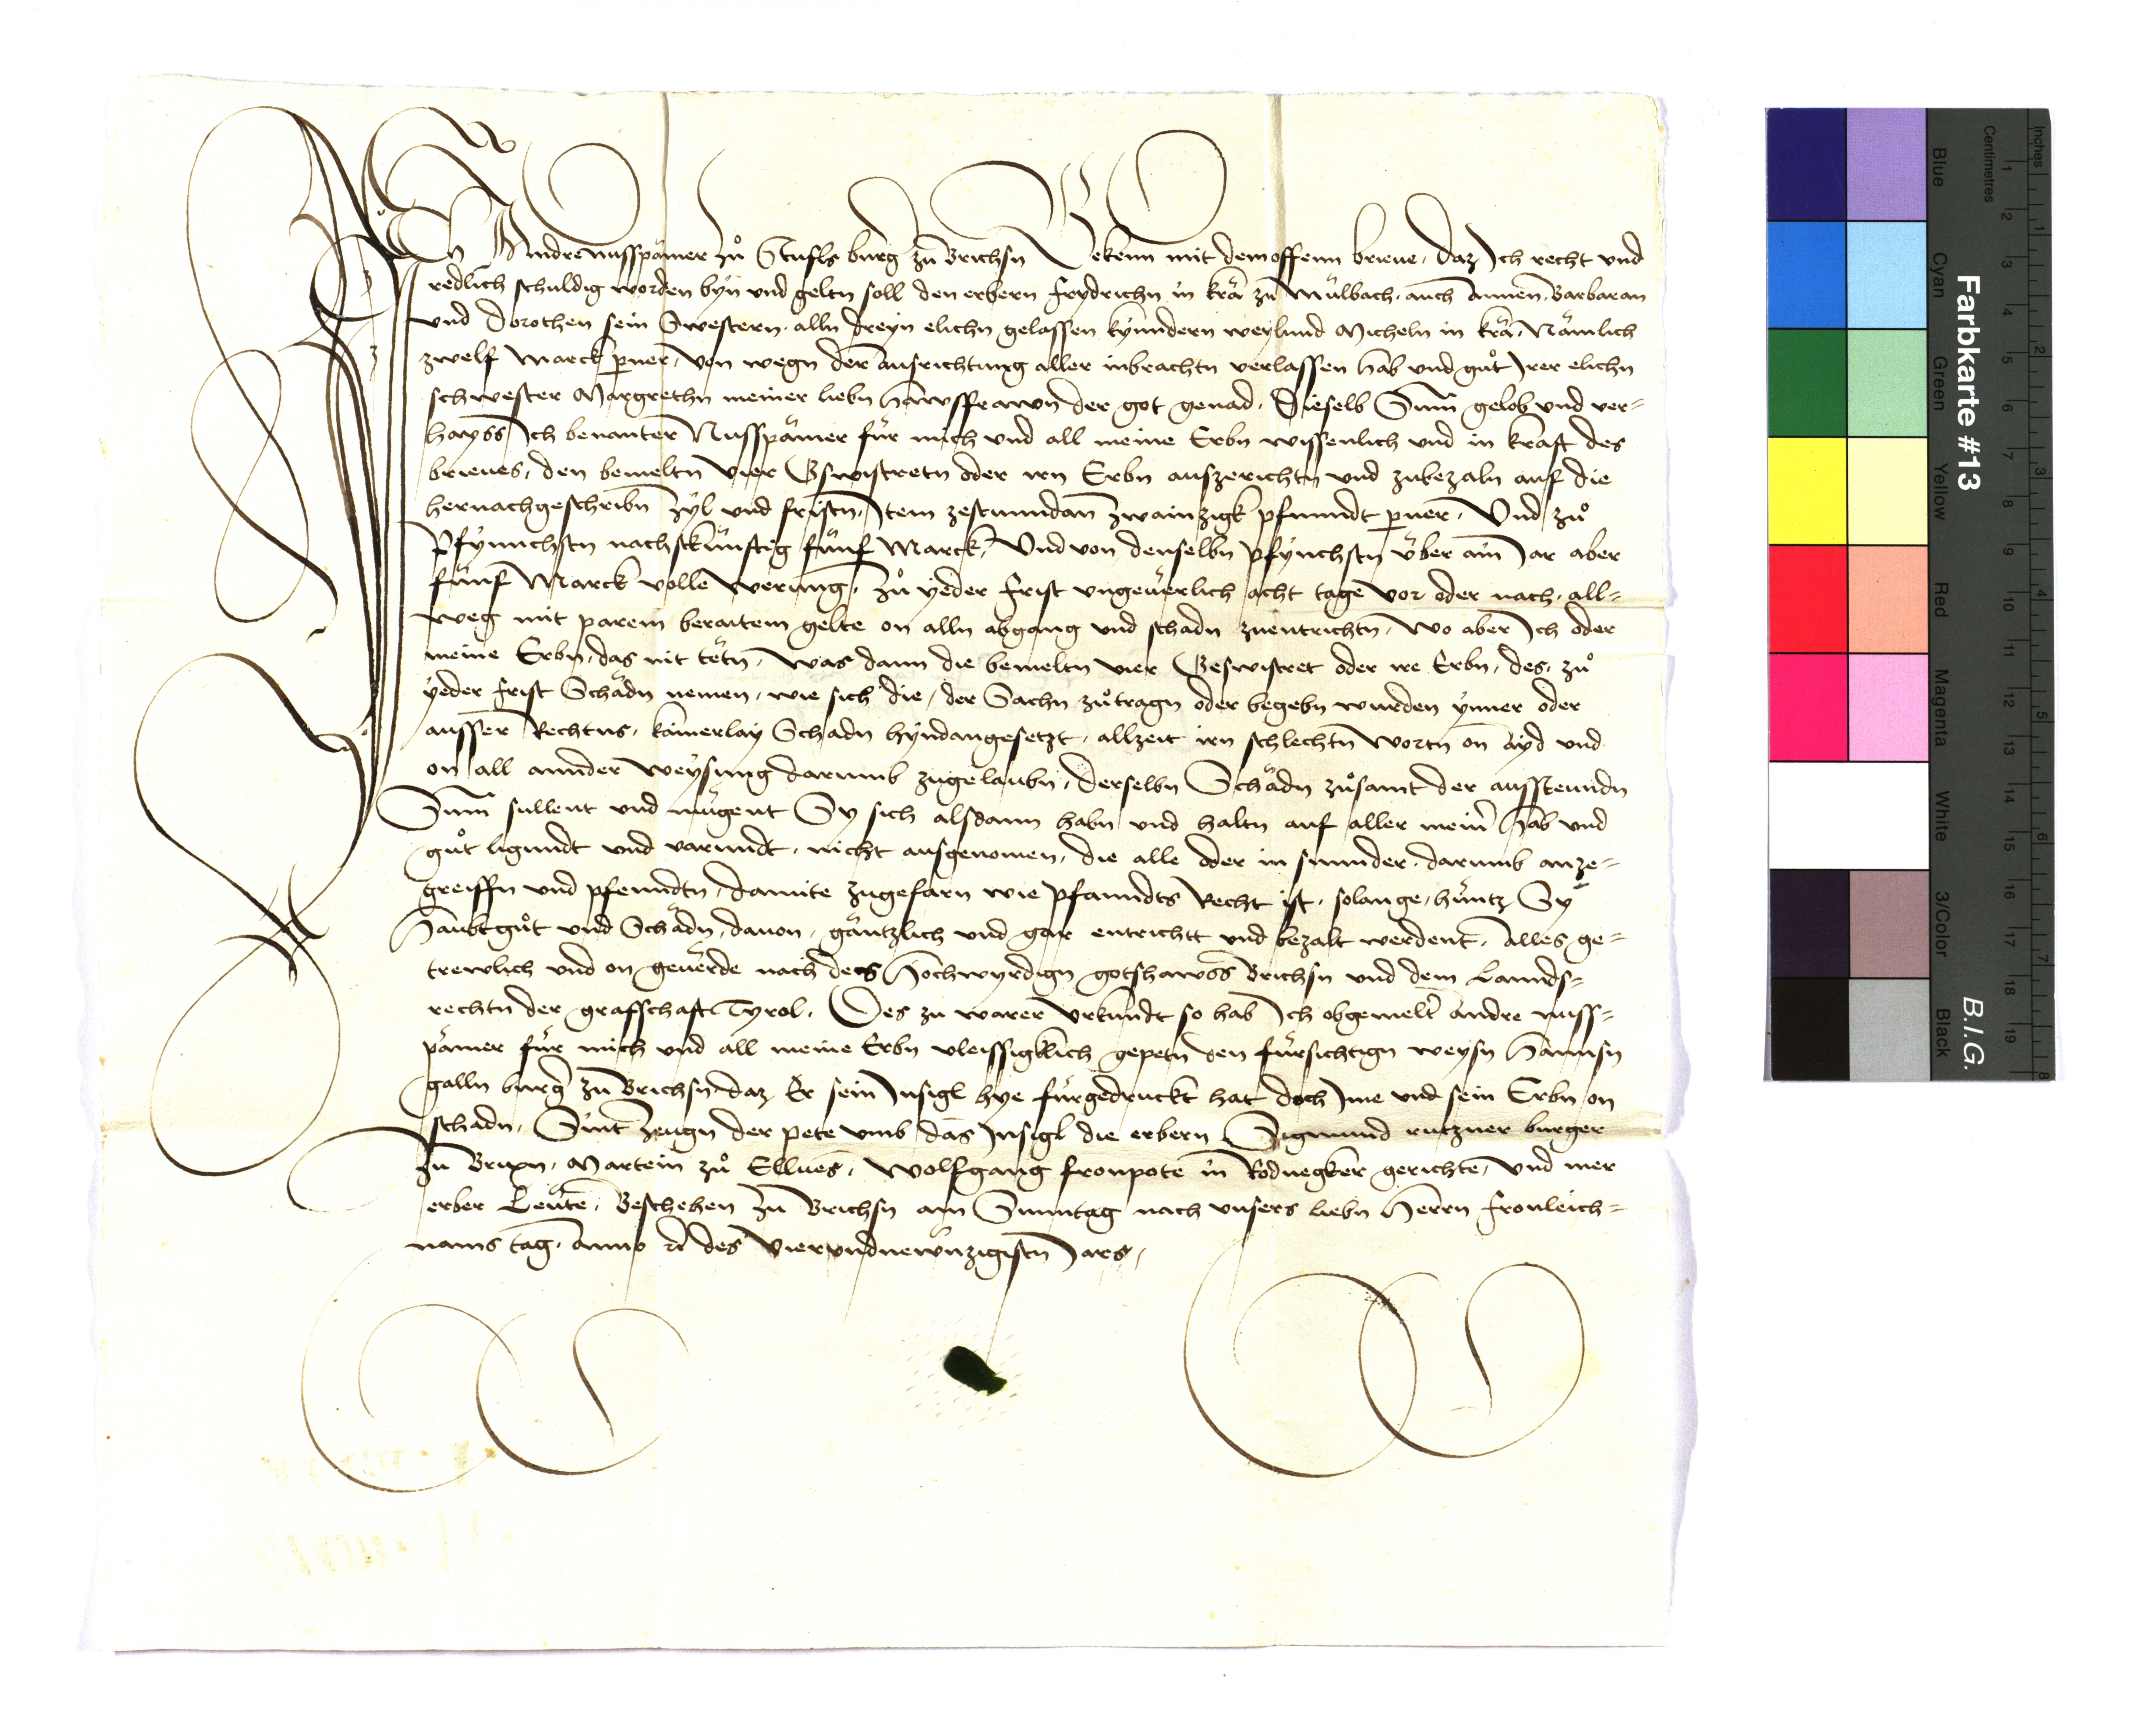 Ich Andre nusspämer zů Stufls burg̃ zu Brichsn Bekenn mit dem offenn brieue, daz Ich recht vnd
redlich schuldig worden byn vnd geltn soll den erbern Frydrichn in krä zu Mülbach, auch Annen, Barbaran
vnd Dorothen sein Swestern, alln dreyn elichn gelassen kynndern weylund Micheln in krä, Nämlich
zwelf Marck perner, von wegn der Ausrichtung aller inbrachtn verlassen hab vnd gůt Irer elichn
schwester Margrethn meiner liebn hawsfrawn der got genad. Dieselb Sum̃ gelob vnd ver=
hayss Ich benanter Nusspämer für mich vnd all meine Erbn wissenlich vnd in kraft des
brieues, den bemeltn vier Gswistretn oder irn Erbn auszerichtn vnd zubezaln auf die
hernachgeschribn zyl vnd fristn, Item zestunndan zwainzigk pfunndt perner, Vnd zů
Pfynnchstn nachstkünftig fünf Marck, Vnd von denselbn Pfynchstn vber ain Jar aber
fünf Marck volle werung, zů yeder Frist vngeuerlich acht tage vor oder nach, all=
weg mit parem beraitem gelte on alln abgang vnd schadn zuentrichtn, Wo aber Ich oder
meine Erbn, das nit tëtn, was dann die bemeltn vier Geswistret oder ire Erbn, des, zů
yeder frist Schädn nemen, wie sich die, der Sachn zůtragn oder begebn wurden ynner oder
ausser Rechtns, kainerlay Schadn hyndangesetzt, allzeit irn schlechtn wortn on ayd vnd
on all annder weysung darumb zugelaubn, derselbn Schädn zůsamt der aussteunndn
Sum̃ sullent vnd mügent Sy sich alsdann habn vnd haltn auf aller meiñ hab vnd
gůt ligundt vnd varundt, nicht ausgenomen, die alle oder in sunnder, darumb anze=
greiffn vnd pfenndtn, damite zugefarn wie Pfanndts Recht ist, solange, hüntz Sy
Haubtgůt vnd Schädn, dauon, gäntzlich vnd gar entricht vnd bezalt werdent, Alles ge=
trewlich vnd on geuërde nach des Hochwyrdign gotshawss Brichsn vnd dem Lannds=
rechtn der grafschaft Tyrol. Des zu warer vrkundt so hab Ich obgemelt Andre nuss=
pämer für mich vnd all meine Erbn vleissigklich gepetn den fürsichtign weysn Hannsn
galln burg̃ zu Brichsn daz Er sein Insigl hye fürgedruckt hat doch Ime vnd sein Erbn on
schadn, Sint zeugn der pete vmb das Insigl die erbern Sigmund rutzner burger
zu Brixn, Martein zů Ellues, Wolfgang fronpote in Rodnegker gerichte, vnd mer
erber Leute, Beschehen zu Brichsn am Sunntag nach vnsers liebn Herrn Fronleich=
nams tag, Anno &c des Vierundnewnzigistn Jars,
Farbkarte #13
B.I.G.
Inches
Centimetres
Blue
Cyan
Green
Yellow
Red
Magenta
White
3/Color
Black
1 2 3 4 5 6 7 8 9 10 11 12 13 14 15 16 17 18 19
1 2 3 4 5 6 7 8